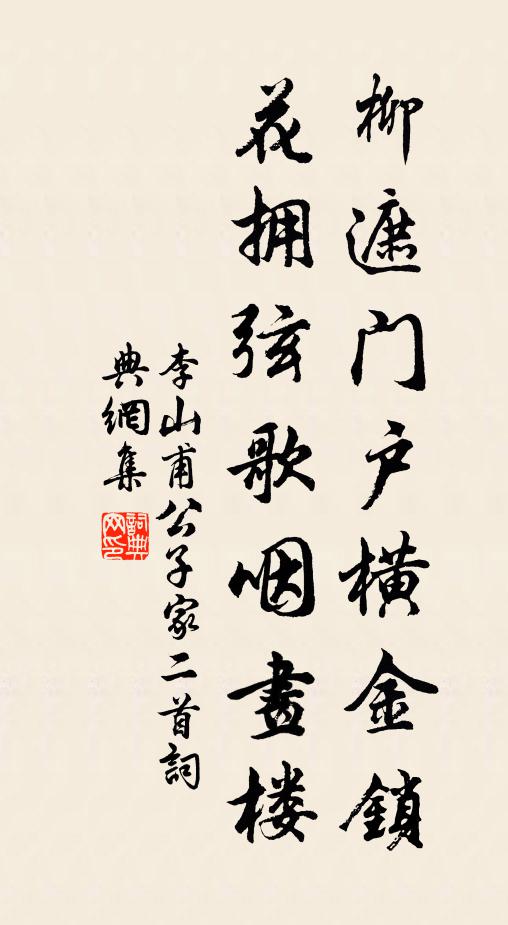 柳遮门户横金鎖
花拥弦歌咽畫楼
李山甫公子家二首詞
典網集
詞典网印